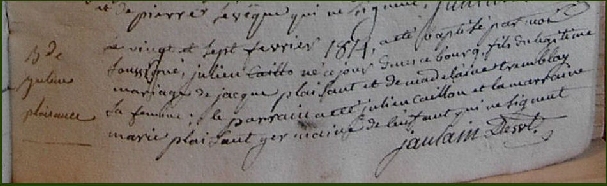 et de pierre Levêque qui ne signent,
Bde
julien
plaisance
Le vingt et sept fevrier 1814, a eté baptisé par moi
soussigné, julien né ce jour dans ce bourg, fils du legitime
mariage de jacque plaisant et de madelaine tremblay
sa femme ; le parrain a eté julien caillon et la marraine
marie plaisant germaine de l'enfant qui ne signent
jaulain Desst.